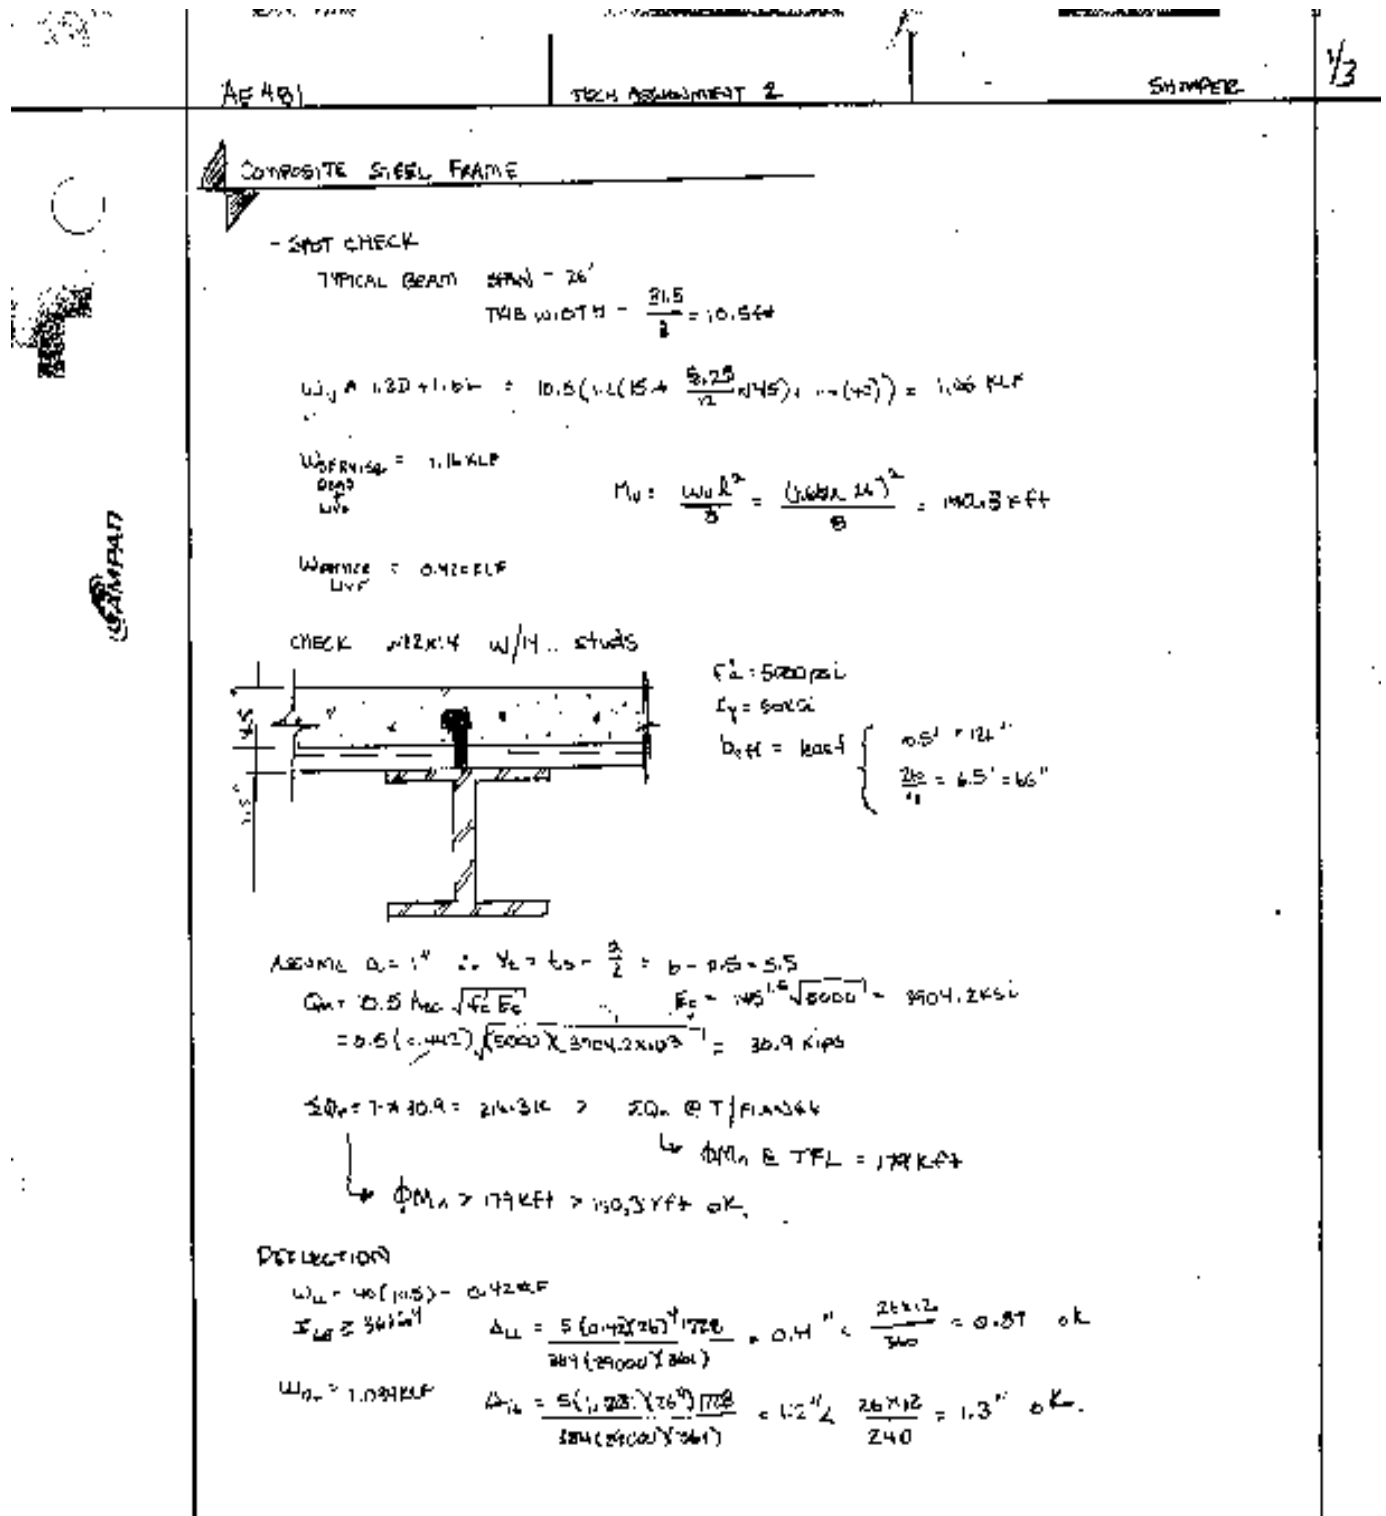 AE 481
TECH ASSIGNMENT 2
SHIMPER
1/3
COMPOSITE STEEL FRAME
CAMPAD
- SPOT CHECK
TYPICAL BEAM SPAN = 26'
TRIB WIDTH = 31.5/3 = 10.5 ft
Wu = 1.2D + 1.6L = 10.5(1.2(15 + 5.25/12 × 145) + (40)) = KLF
W SERVICE DEAD + LIVE = 1.16 KLF
Mu = wu l²/8 = ( 26)²/8 = k ft
W SERVICE LIVE = 0.420 KLF
CHECK W12x14 w/14 studs
4.5"
1.5"
f'c = 5000 psi
Fy = 50 ksi
beff = least { 10.5' = 126"
26/4 = 6.5' =
ASSUME a = 1" ∴ Y2 = ts - a/2 = 6 - 0.5 = 5.5
Qn = 0.5 Asc √f'c Ec Ec = 145^1.5 √5000 = 3904.2 ksi
= 0.5(0.442)√(5000)(3904.2x10³) = 30.9 kips
ΣQn = 7 x 30.9 = 216.3k > ΣQn @ T/FLANGE
↳ ϕMn @ TFL = 179 kft
↳ ϕMn > 179 kft > kft OK.
DEFLECTION
WLL = 40(10.5) = 0.42 KLF
ILB =
ΔLL = 5(0.42)(26)⁴1728 / 384(29000)(361) = 0.41" < 26x12/360 = 0.87 ok
ΔTL = 5( )(26⁴)1728 / 384(29000)(361) = 1.2" < 26x12/240 = 1.3" ok.